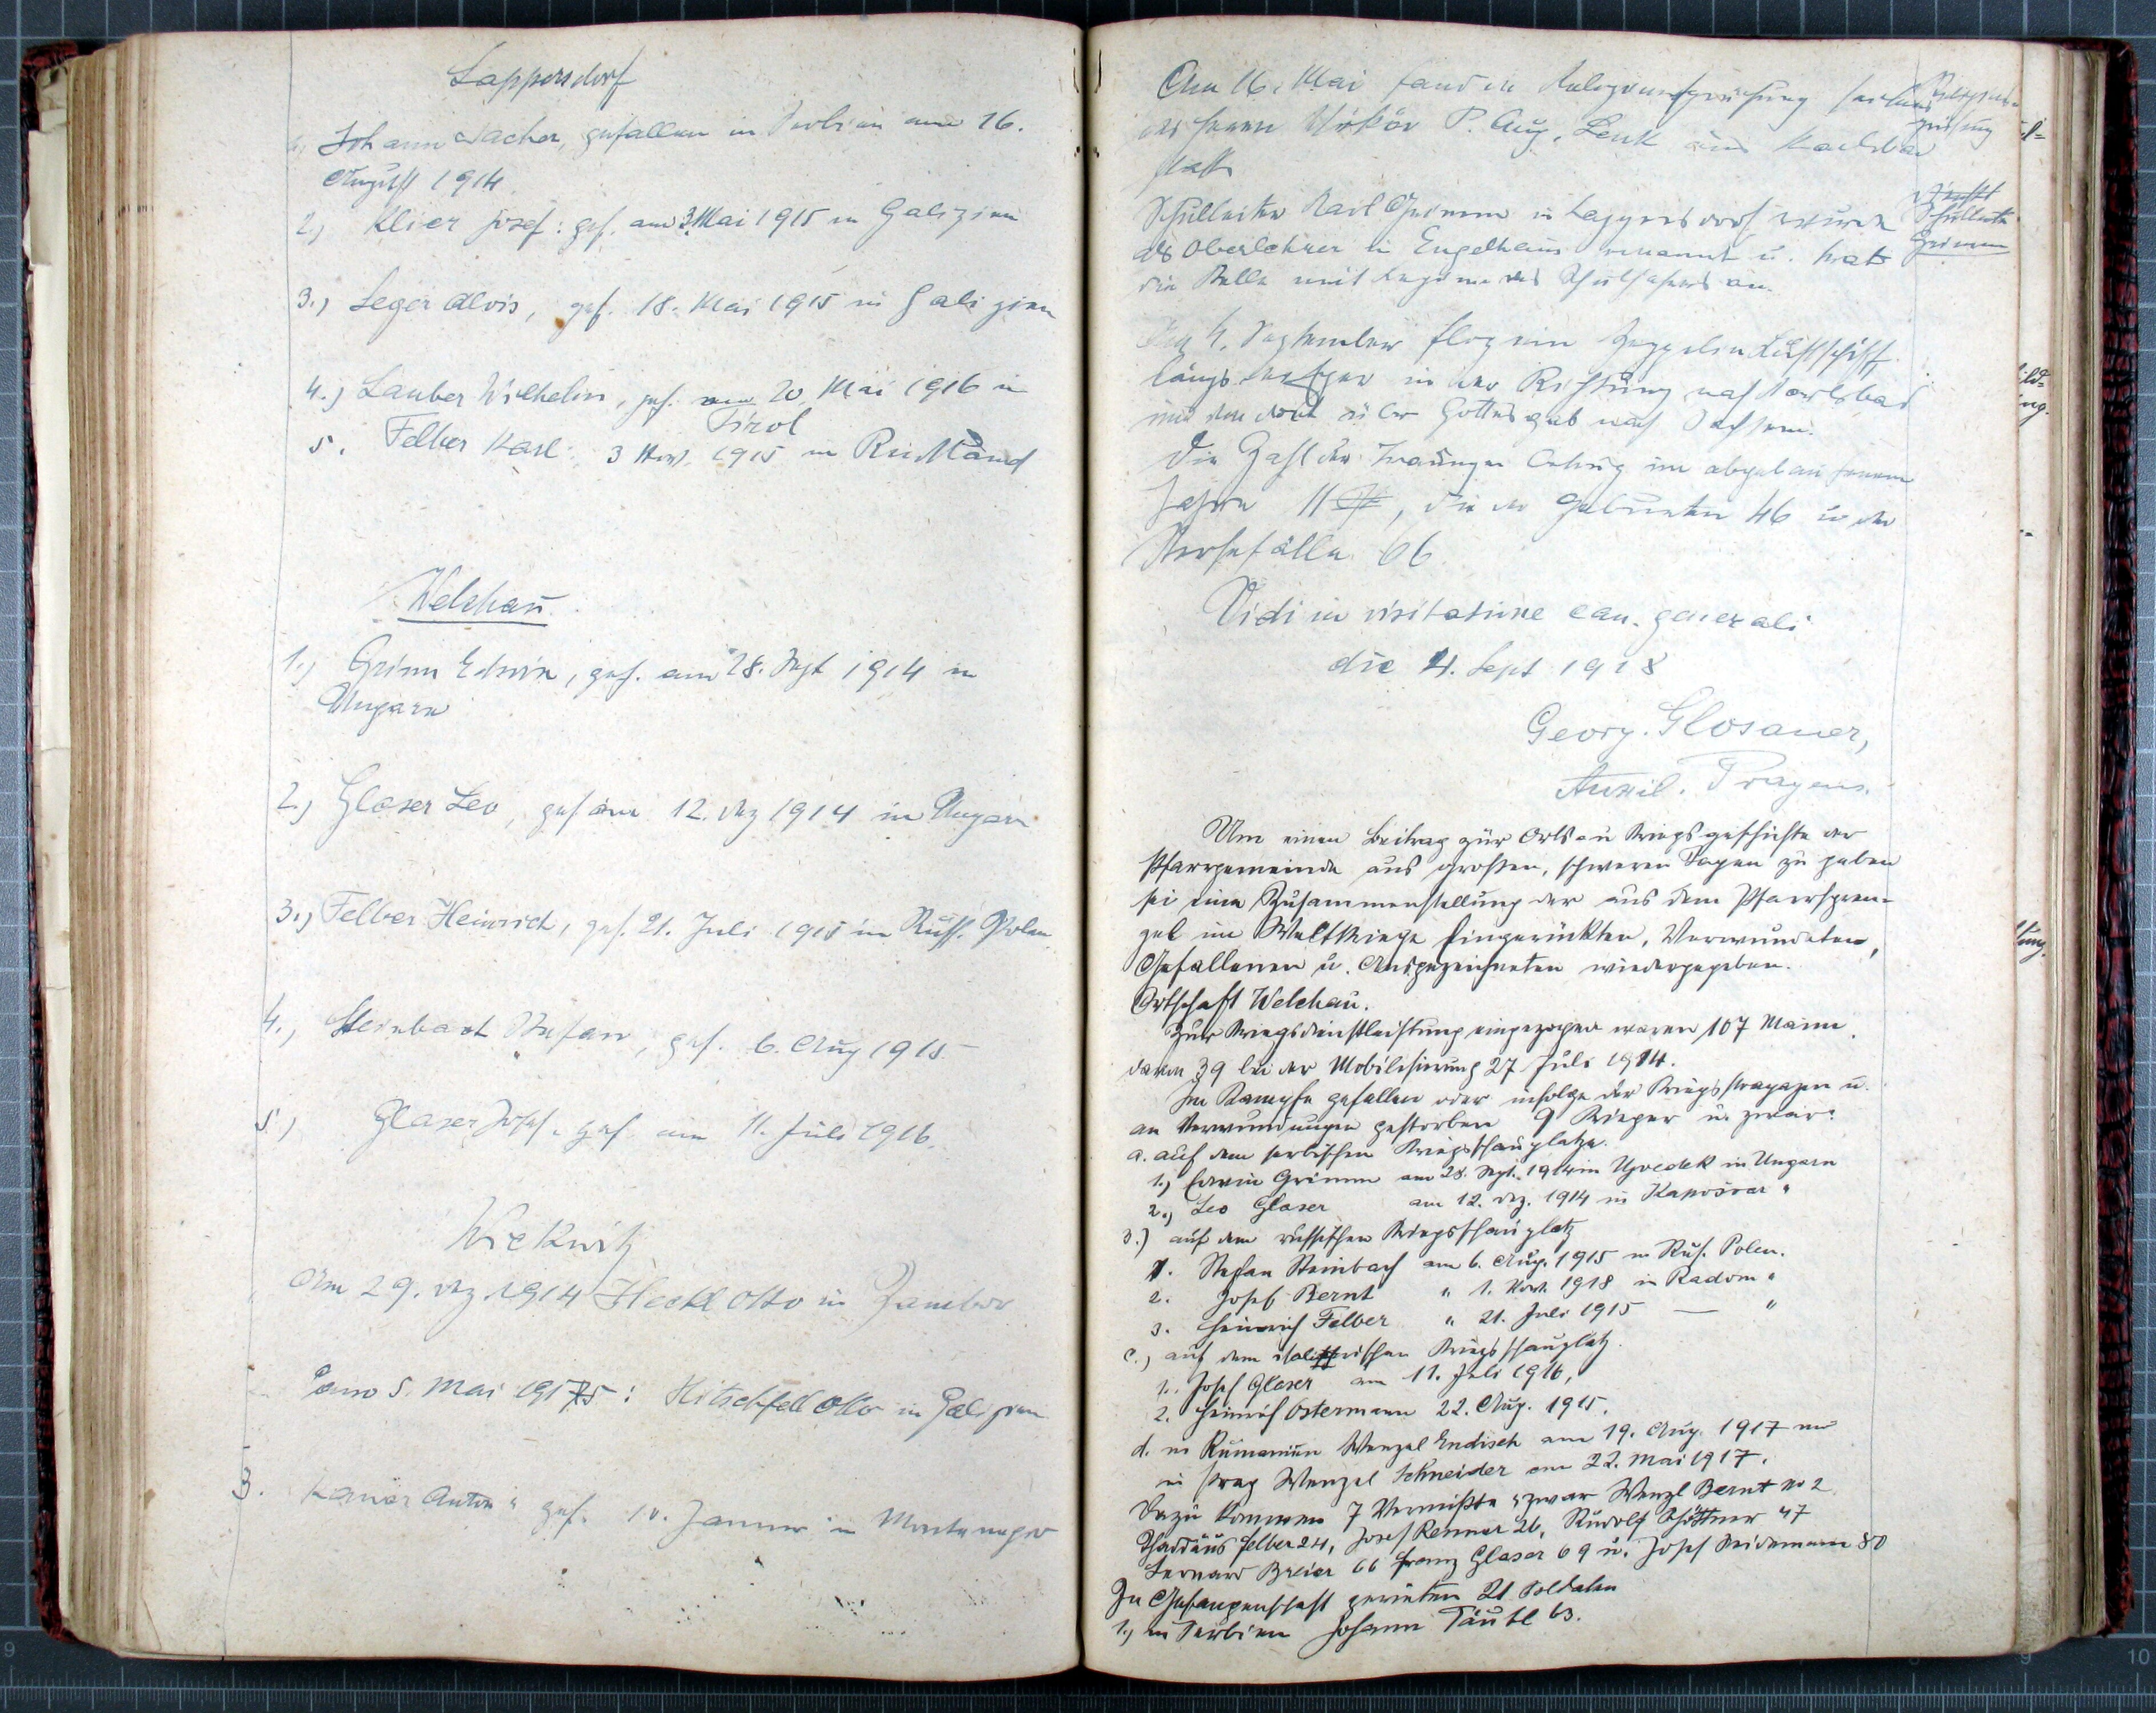 Lappersdorf
Johann Sacher, gefallen in Serbien am 16.
August 1914
2.) Klier Josef: gef. am 3. Mai 1915 in Galizien
3.) Leger Alois, gef. 18. Mai 1915 in Galizien
4.) Lauber Wilhelm, gef. am 20. Mai 1916 in
Tirol
5. Felber Karl: 3 Nov. 1915 in Rußland
Welchau
1.) Grimm Edwin, gef. am 28. Sept 1914 in
Ungarn
2.) Glaser Leo, gef am 12. Dez 1914 in Ungarn
3.) Felber Heinrich, gef. 21. Juli 1915 in Russ. Polen
4.) Steinbach Stefan, gef. 6. Aug 1915
5.) Glaser Josef. gef am 11. Juli 1916.
Wickwitz
Am 29. Dez. 1914 Heckl Otto in
am 5. Mai 1915: Hitschfel Otto in Galizien
3. Anton gef. 10. Januar in Montenegro
Am 16. Mai fand die Religionsprüfung seitens
des Herrn Vikär P. Aug. Lenk aus Karlsbad
statt
Religions-
prüfung
Schulleiter Karl Grimm in Lappersdorf wurde
als Oberlehrer in Engelhaus ernannt u. trat
die Stelle mit Beginn des Schuljahres an.
Schulleiter
Grimm
Am 4. September flog ein Zeppelin Luftschiff
längs der Eger in der Richtung nach Karlsbad
und von dort über Gottesgab nach Sachsen.
Die Zahl der Trauungen betrug im abgelaufenen
Jahre 11, die der Geburten 46 u. der
Sterbefälle 66.
Vidi in visitatione can. generali
die 4. Sept 1918
Georg. Glosauer,
Auxil. Pragens.
Um einen Beitrag zur Orts- u Kriegsgeschichte der
Pfarrgemeinde aus großen, schweren Tagen zu geben
sei eine Zusammenstellung der aus dem Pfarrspren-
gel im Weltkriege Eingerückten, Verwundeten,
Gefallenen u. Ausgezeichneten wiedergegeben.
Ortschaft Welchau.
Zur Kriegsdienstleistung eingezogen waren 107 Mann
davon 39 bei der Mobilisierung 27 Juli 1914.
Im Kampfe gefallen oder infolge der Kriegsstrapazen u.
an Verwundungen gestorben 9 Krieger u. zwar:
a. auf dem serbischen Kriegsschauplatze.
1.) Edwin Grimm am 28. Sept. 1914 in Ujvedek in Ungarn
2.) Leo Glaser am 12. Dez. 1914 in Kaposvar "
3.) auf dem russischen Kriegsschauplatz
1. Stefan Steinbach am 6. Aug. 1915 in Russ. Polen.
2. Josef Bernt " 1. Nov. 1918 in Radom "
3. Heinrich Felber " 21. Juli 1915 — "
c.) auf dem italienischen Kriegsschauplatz.
1. Josef Glaser am 11. Juli 1916,
2. Heinrich Ostermann 22. Aug. 1915.
d. in Rumänien Wenzel Endisch am 19. Aug. 1917 und
in Prag Wenzel Schneider am 22. Mai 1917.
Dazu kommen 7 Vermißte u zwar Wenzl Bernt No 2
Thaddäus Felber 24, Josef Renner 26, Rudolf 47
Breier 66 Franz Glaser 69 u. Josef 80
In Gefangenschaft gerieten 21 Soldaten
1.) in Serbien Johann Täubl 63.